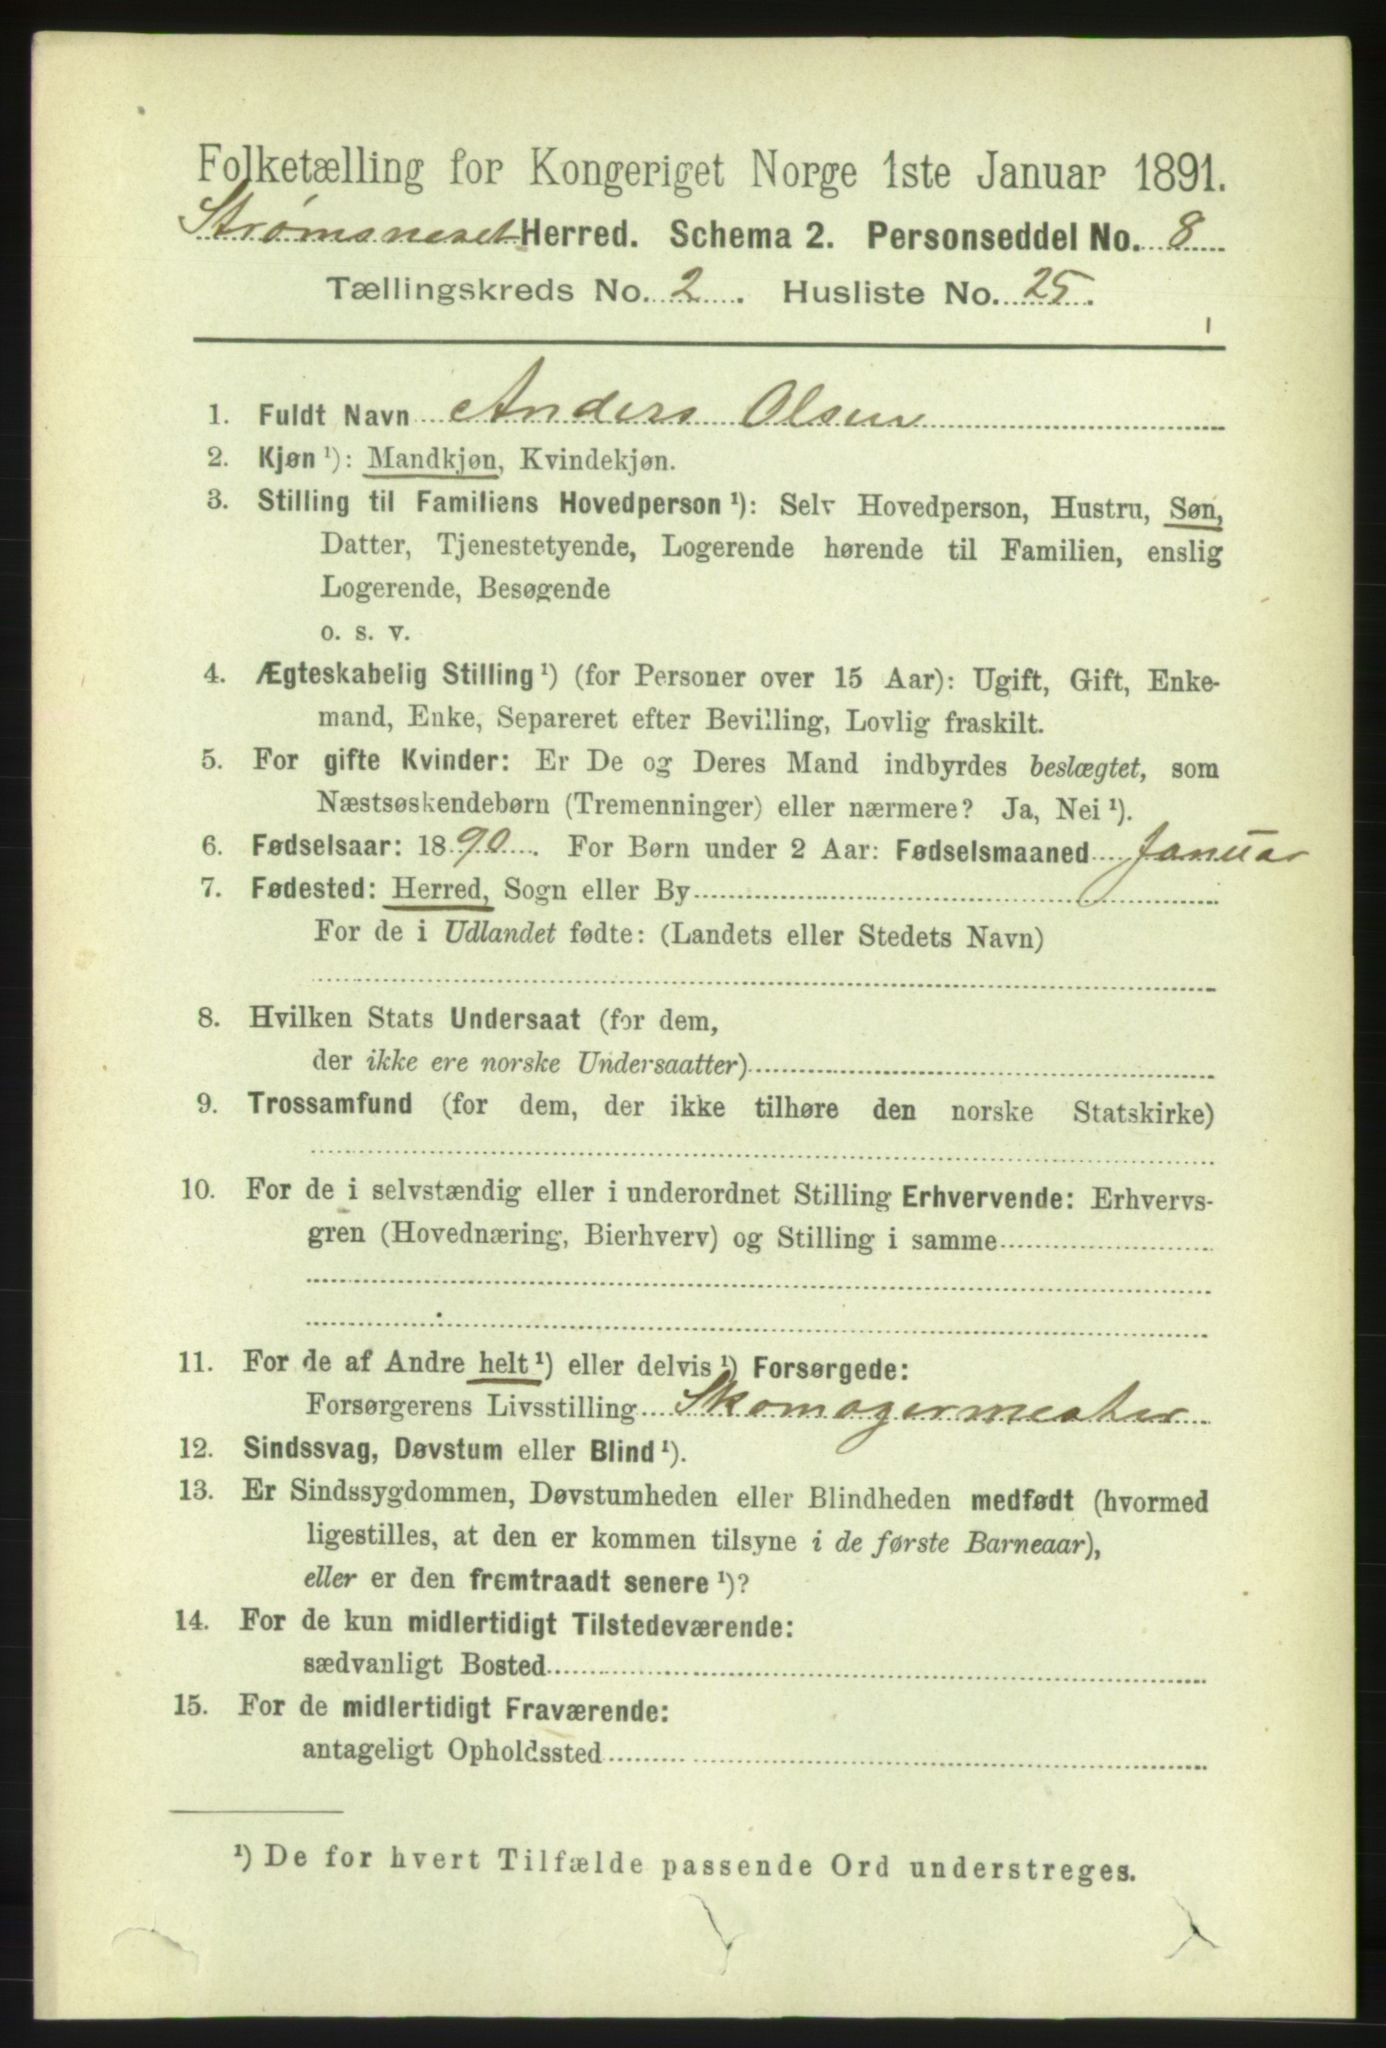 Folketælling for Kongeriget Norge 1ste Januar 1891.
Strømsneset Herred. Schema 2. Personseddel No. 8
Tællingskreds No. 2. Husliste No. 25.
1. Fuldt Navn Anders Olsen
2. Kjøn ¹): Mandkjøn, Kvindekjøn.
3. Stilling til Familiens Hovedperson ¹): Selv Hovedperson, Hustru, Søn,
Datter, Tjenestetyende, Logerende hørende til Familien, enslig
Logerende, Besøgende
o. s. v.
4. Ægteskabelig Stilling ¹) (for Personer over 15 Aar): Ugift, Gift, Enke-
mand, Enke, Separeret efter Bevilling, Lovlig fraskilt.
5. For gifte Kvinder: Er De og Deres Mand indbyrdes beslægtet, som
Næstsøskendebørn (Tremenninger) eller nærmere? Ja, Nei ¹).
6. Fødselsaar: 1890. For Børn under 2 Aar: Fødselsmaaned Januar
7. Fødested: Herred, Sogn eller By
For de i Udlandet fødte: (Landets eller Stedets Navn)
8. Hvilken Stats Undersaat (for dem,
der ikke ere norske Undersaatter)
9. Trossamfund (for dem, der ikke tilhøre den norske Statskirke)
10. For de i selvstændig eller i underordnet Stilling Erhvervende: Erhvervs-
gren (Hovednæring, Bierhverv) og Stilling i samme
11. For de af Andre helt ¹) eller delvis ¹) Forsørgede:
Forsørgerens Livsstilling Skomagermester
12. Sindssvag, Døvstum eller Blind ¹).
13. Er Sindssygdommen, Døvstumheden eller Blindheden medfødt (hvormed
ligestilles, at den er kommen tilsyne i de første Barneaar),
eller er den fremtraadt senere ¹)?
14. For de kun midlertidigt Tilstedeværende:
sædvanligt Bosted
15. For de midlertidigt Fraværende:
antageligt Opholdssted
¹) De for hvert Tilfælde passende Ord understreges.